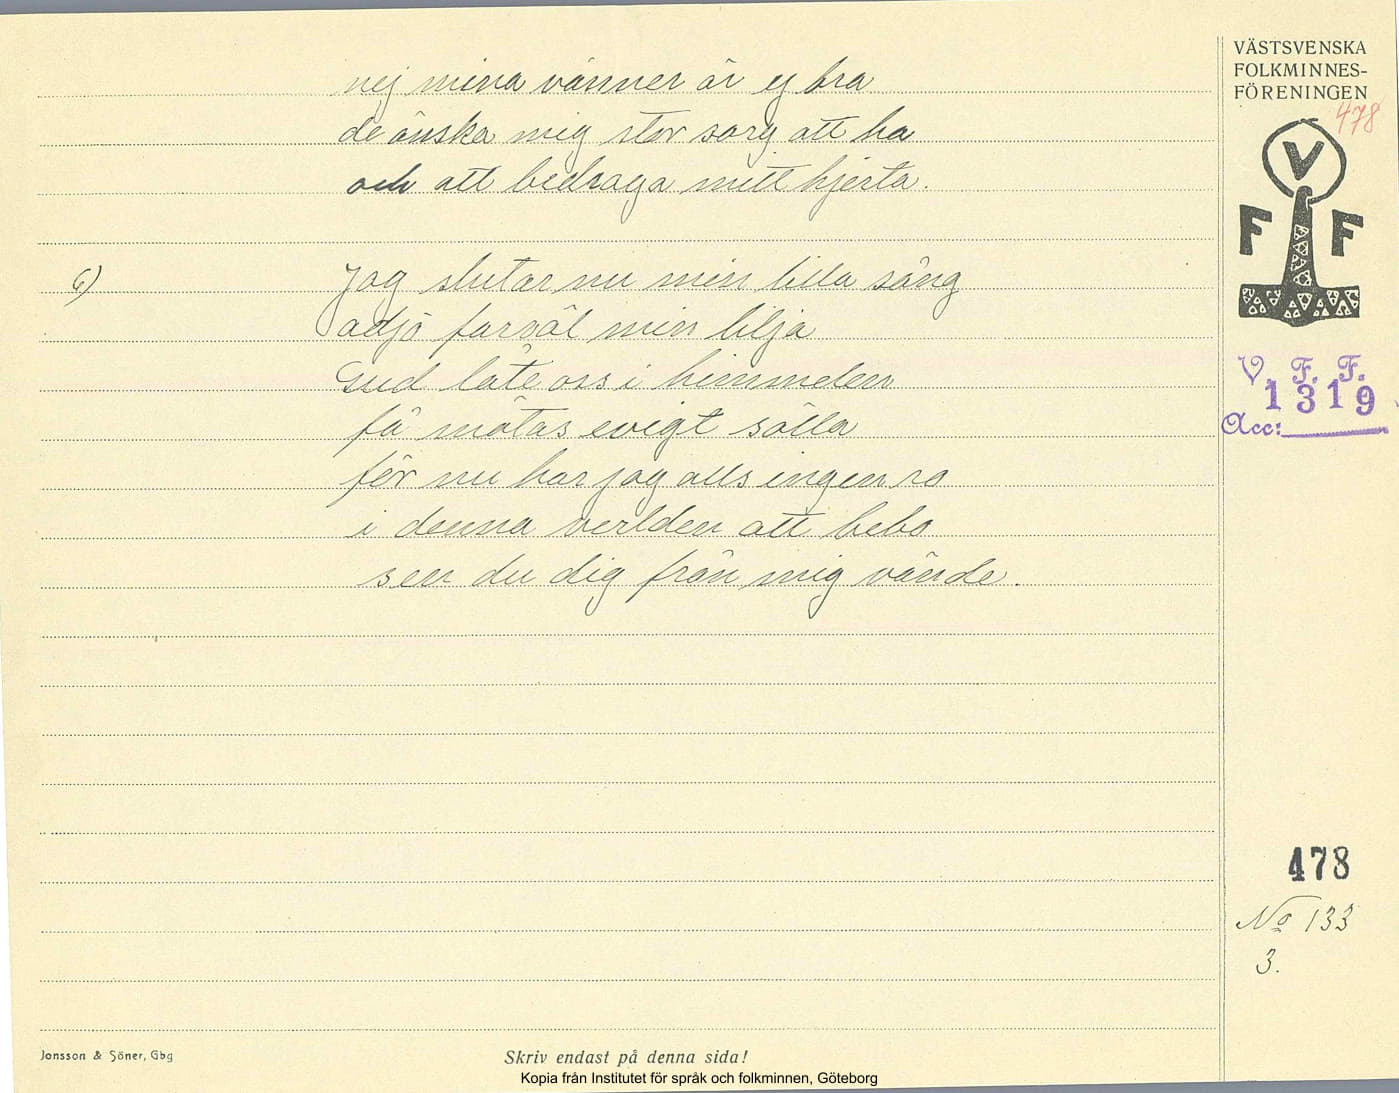 nej mina vänner är ej bra
de önska mig stor sorg att ha
och att bedraga mitt hjerta.
6) Jag slutar nu min lilla sång
adjö farväl min lilja
Gud låte oss i himmelen
få mötas evigt sälla
för nu har jag alls ingen ro
i denna verlden att bebo
sen du dig från mig vände.
VÄSTSVENSKA
FOLKMINNES-
FÖRENINGEN
478
V
F F
V. F. F.
1319
Acc:
478
No 133
3.
Jonsson & Söner, Gbg
Skriv endast på denna sida!
Kopia från Institutet för språk och folkminnen, Göteborg